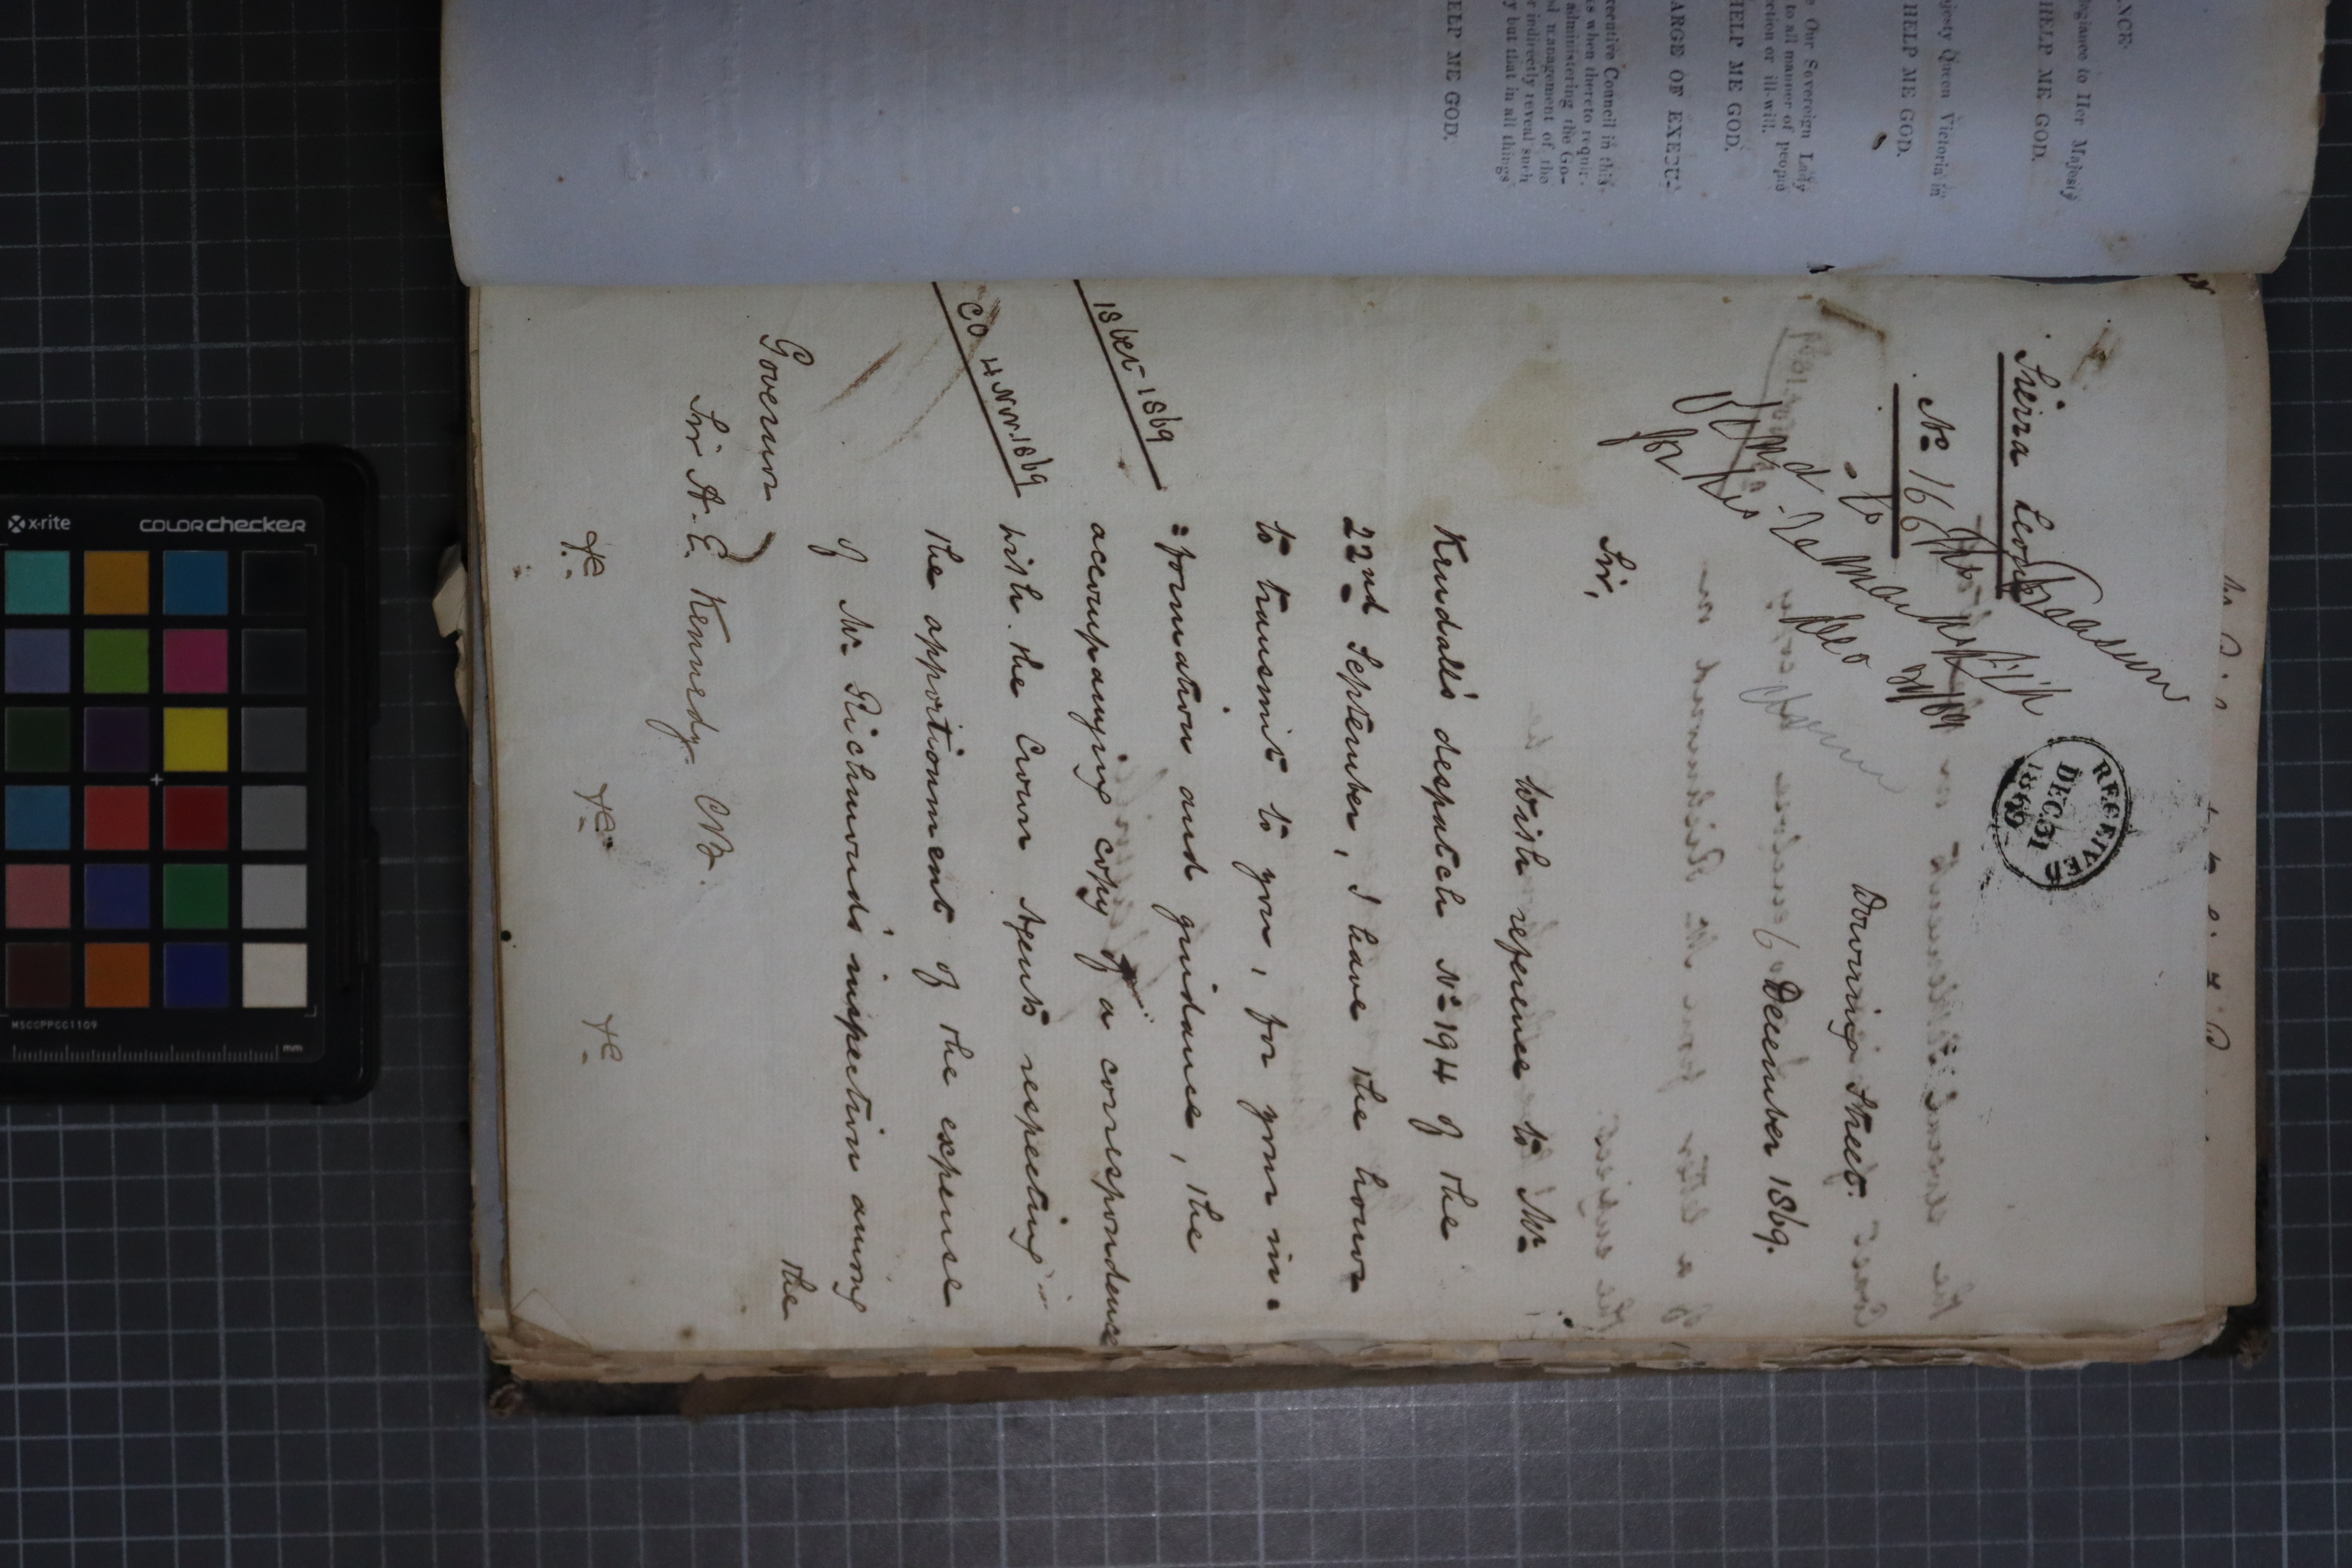 NCE.
legiance to Her Majesty
HELP ME GOD.
ajesty Queen Victoria in
HELP ME GOD.
Our Sovereign Lady
to all manner of people
ction or ill-will.
HELP ME GOD.
ARGE OF EXECU-
ecutive Council in this
s when thereto requir-
administering the Go-
d management of the
r indirectly reveal such
y but that in all things
ELP ME GOD.
Sierra Leone
No 166
Treasurer
for his
RECEIVED
DEC 31
1869
Downing Street.
December 1869.
Sir,
With reference to Mr
Kendall's despatch No 194 of the
22nd September, I have the honor
to transmit to you, for your in=
=formation and guidance, the
accompanying copy of a correspondence
with the Crown Agents respecting
the apportionment of the expense
of Mr Richmond's inspection among
the
1869
CO 4 Nov. 1869
Governor
Sir A. E. Kennedy. CB.
&c &c &c
x-rite
COLORchecker
MSCCPPCC1109
mm